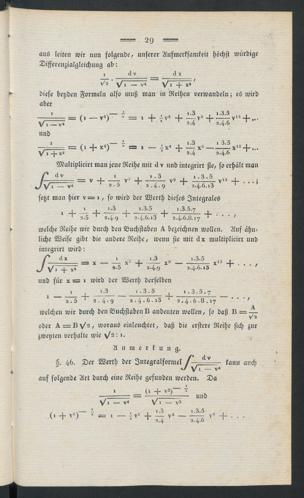 29
aus leiten wir nun folgende, unserer Aufmerksamkeit höchst würdige
Differenzialgleichung ab:
1/√2 · dv/√(1 − v⁴) = dx/√(1 + x⁴),
diese beyden Formeln also muß man in Reihen verwandeln; es wird
aber
1/√(1−v⁴) = (1 − v⁴)^(−½) = 1 + ½ v⁴ + 1.3/2.4 v⁸ + 1.3.5/2.4.6 v¹² + ...
und
1/√(1+x⁴) = (1 + x⁴)^(−½) = 1 − ½ x⁴ + 1.3/2.4 x⁸ − 1.3.5/2.4.6 x¹² + ...
Multiplicirt man jene Reihe mit dv und integrirt sie, so erhält man
∫ dv/√(1 − v⁴) = v + 1/2.5 v⁵ + 1.3/2.4.9 v⁹ + 1.3.5/2.4.6.13 v¹³ + ... ;
setzt man hier v = 1, so wird der Werth dieses Integrales
1 + 1/2.5 + 1.3/2.4.9 + 1.3.5/2.4.6.13 + 1.3.5.7/2.4.6.8.17 + . . . ,
welche Reihe wir durch den Buchstaben A bezeichnen wollen. Auf ähn-
liche Weise gibt die andere Reihe, wenn sie mit dx multiplicirt und
integrirt wird:
∫ dx/√(1 + x⁴) = x − 1/2.5 x⁵ + 1.3/2.4.9 x⁹ − 1.3.5/2.4.6.13 x¹³ + . . . ,
und für x = 1 wird der Werth derselben
1 − 1/2.5 + 1.3/2.4.9 − 1.3.5/2.4.6.13 + 1.3.5.7/2.4.6.8.17 − . . . ,
welchen wir durch den Buchstaben B andeuten wollen, so daß B = A/√2
oder A = B√2, woraus einleuchtet, daß die erstere Reihe sich zur
zweyten verhalte wie √2 : 1.
Anmerkung.
§. 46. Der Werth der Integralformel ∫ dv/√(1 − v⁴) kann auch
auf folgende Art durch eine Reihe gefunden werden. Da
1/√(1 − v⁴) = (1 + v²)^(−½)/√(1 − v²) und
(1 + v²)^(−½) = 1 − ½ v² + 1.3/2.4 v⁴ − 1.3.5/2.4.6 v⁶ + . . .